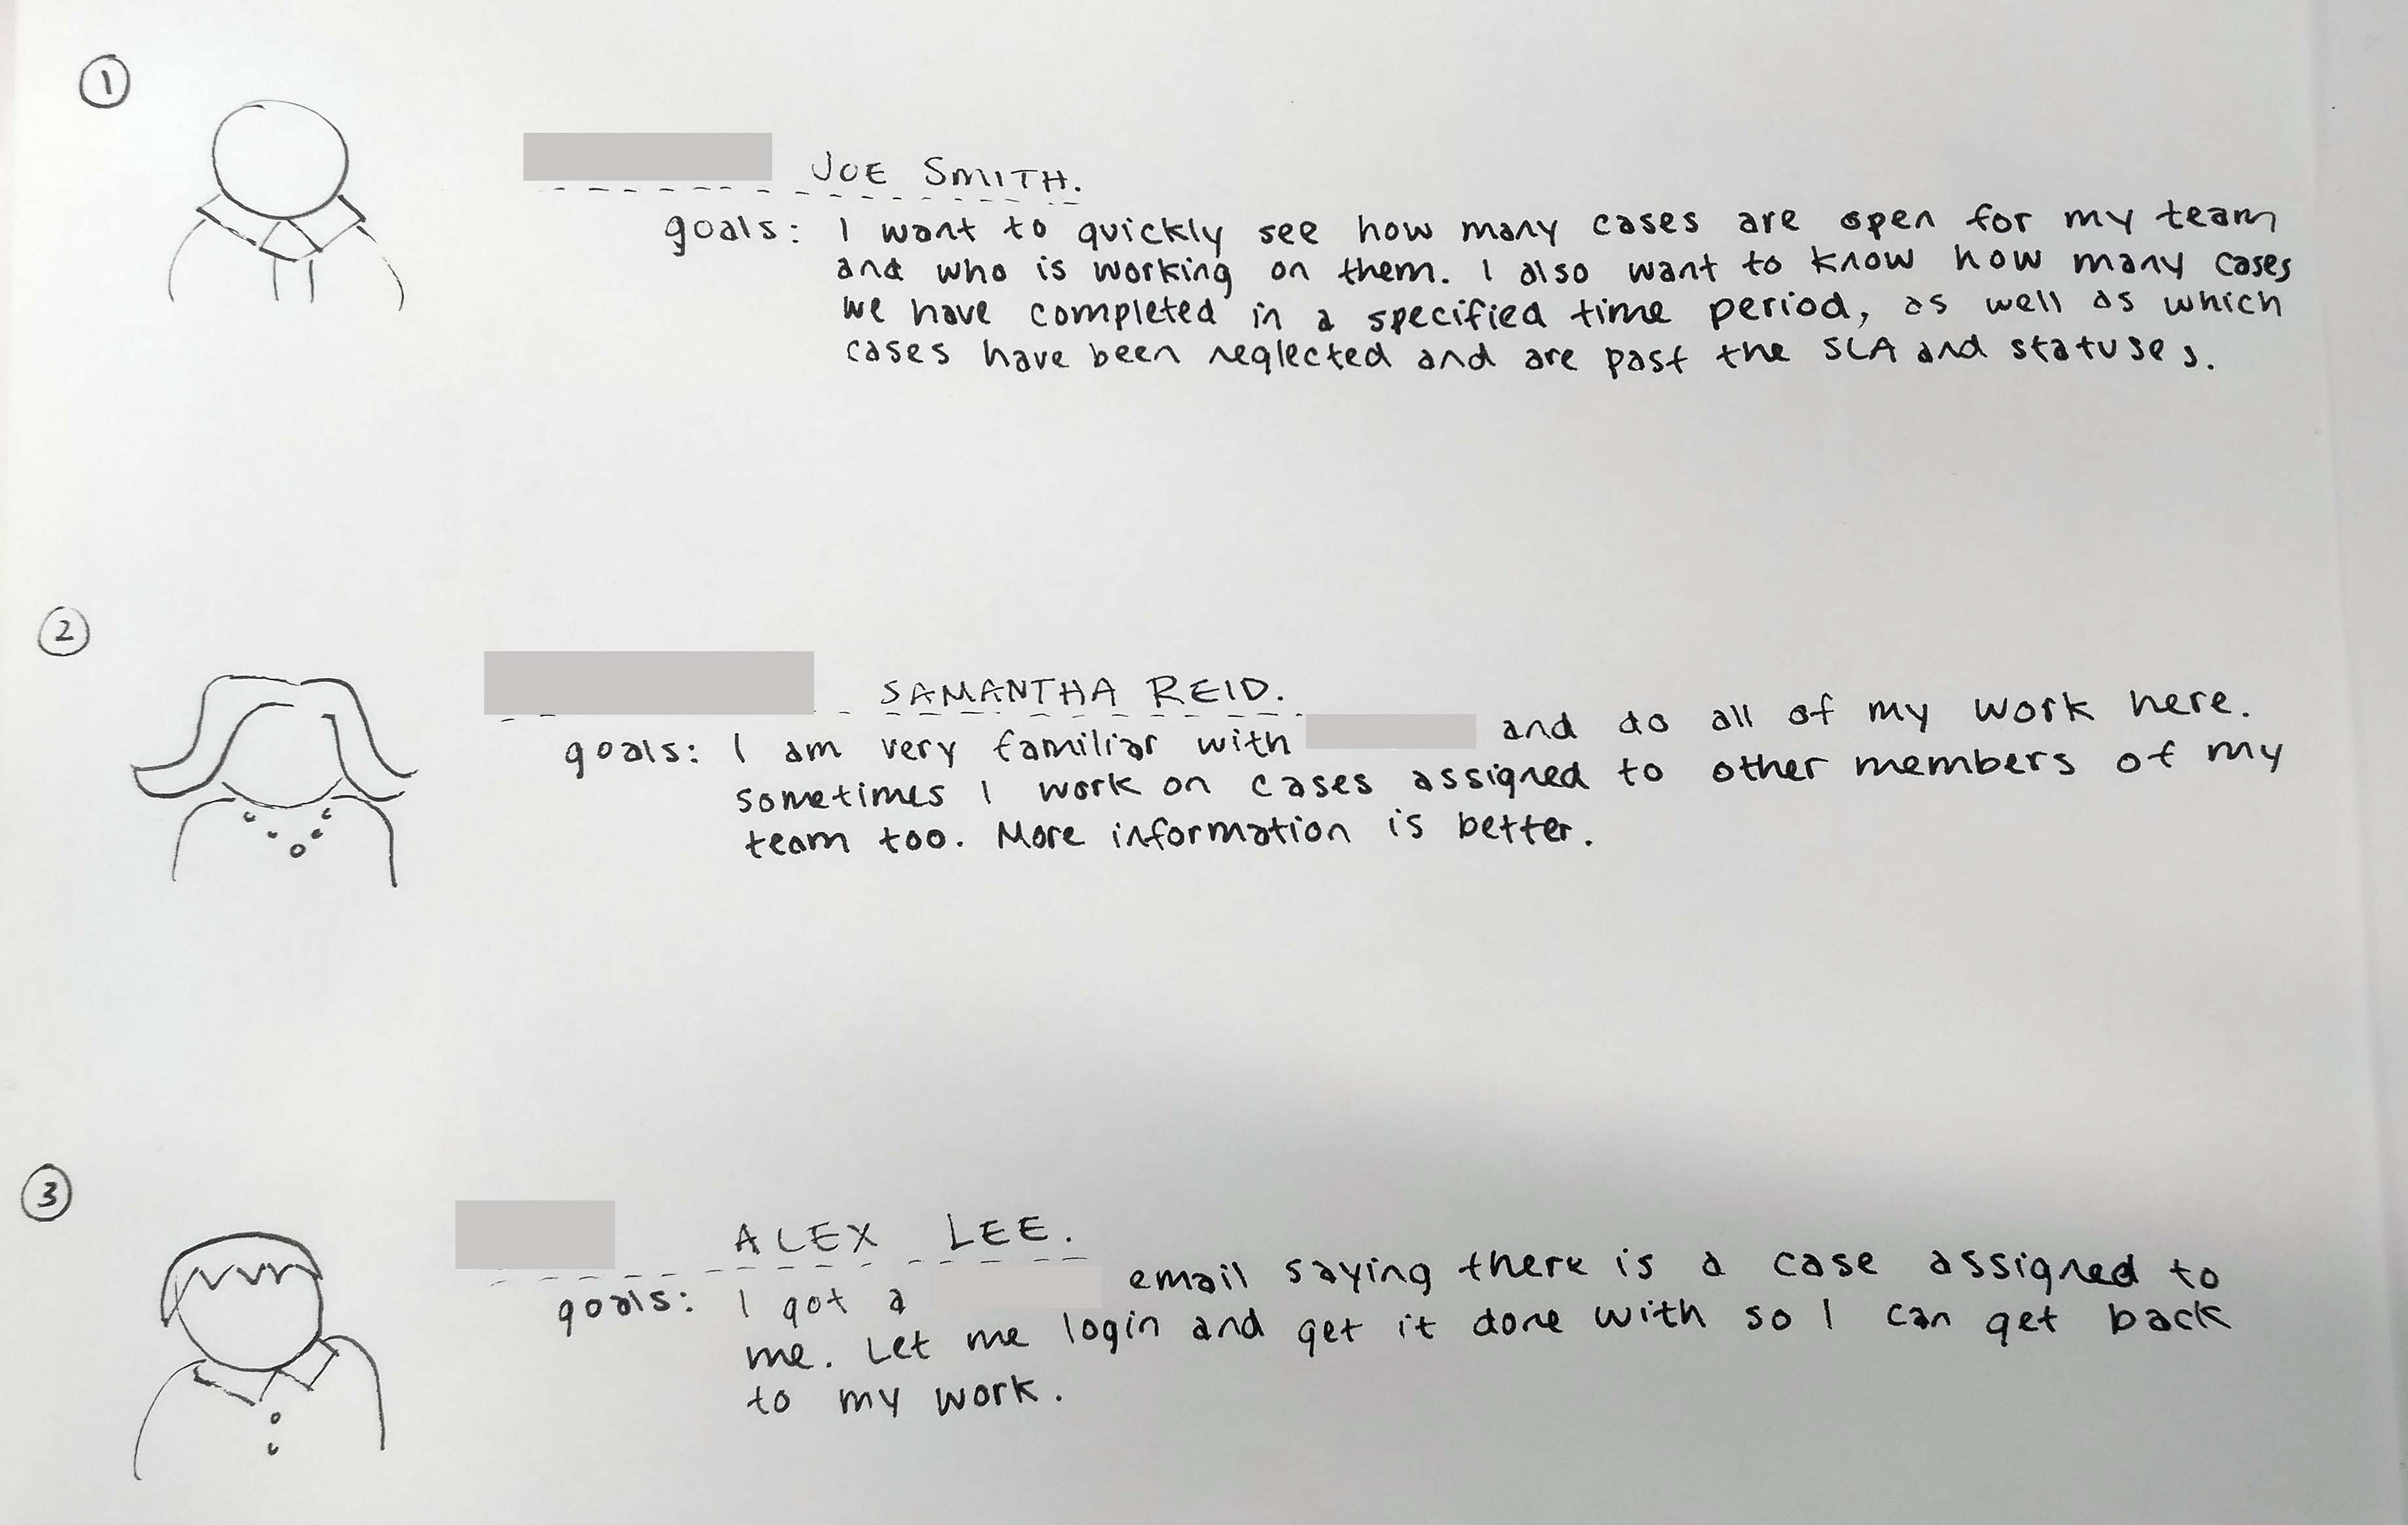 1
JOE SMITH.
goals: I want to quickly see how many cases are open for my team
and who is working on them. I also want to know how many cases
we have completed in a specified time period, as well as which
cases have been neglected and are past the SLA and statuses.
2
SAMANTHA REID.
goals: I am very familiar with and do all of my work here.
sometimes I work on cases assigned to other members of my
team too. More information is better.
3
ALEX LEE.
goals: I got a email saying there is a case assigned to
me. Let me login and get it done with so I can get back
to my work.